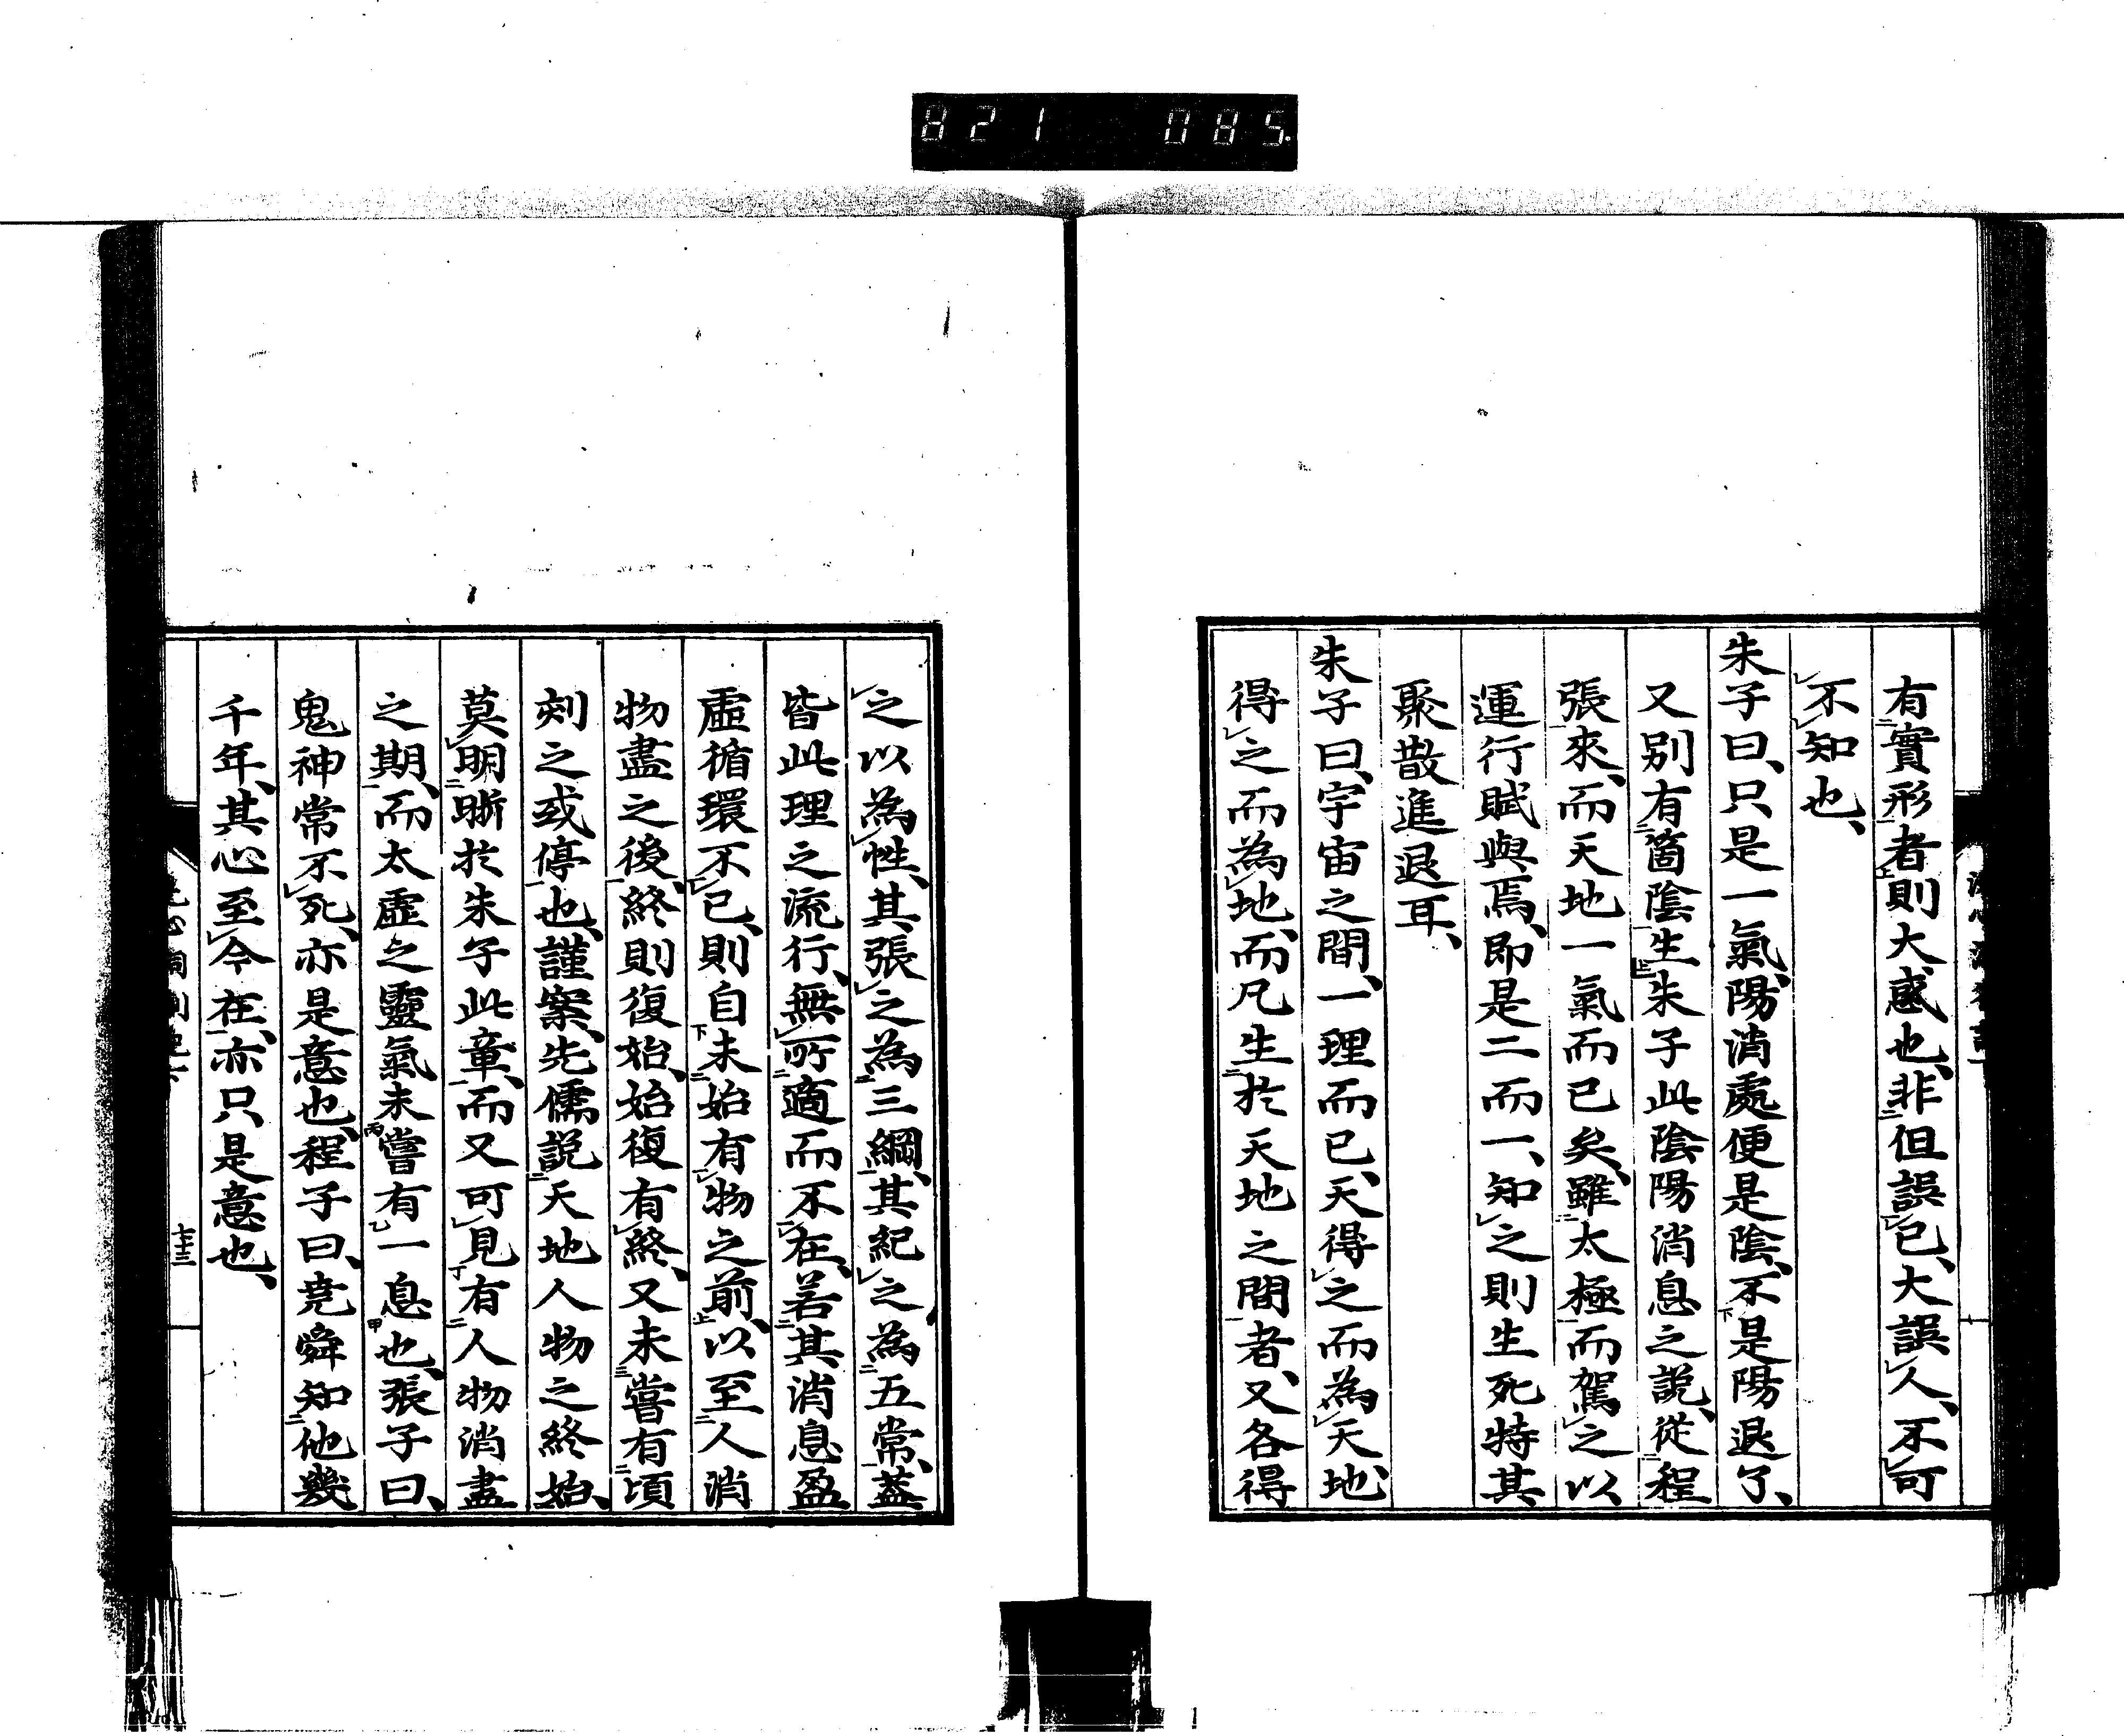 821 085
有實形者則大惑也、非但誤已、大誤人、不可
不知也、
朱子曰、只是一氣、陽消處便是陰、不是陽退了、
又別有箇陰生、朱子此陰陽消息之說、從程
張來、而天地一氣而已矣、雖太極而駕之以
運行賦與焉、即是二而一、知之則生死特其
聚散進退耳、
朱子曰、宇宙之間、一理而已、天得之而為天、地
得之而為地、而凡生於天地之間者、又各得
之以為性、其張之為三綱、其紀之為五常、蓋
皆此理之流行、無所適而不在、若其消息盈
虛循環不已、則自未始有物之前、以至人消
物盡之後、終則復始、始復有終、又未嘗有頃
刻之或停也、謹案、先儒說天地人物之終始、
莫明晣於朱子此章、而又可見有人物消盡
之期、而太虛之靈氣未嘗有一息也、張子曰、
鬼神常不死、亦是意也、程子曰、堯舜知他幾
千年、其心至今在、亦只是意也、
七十三